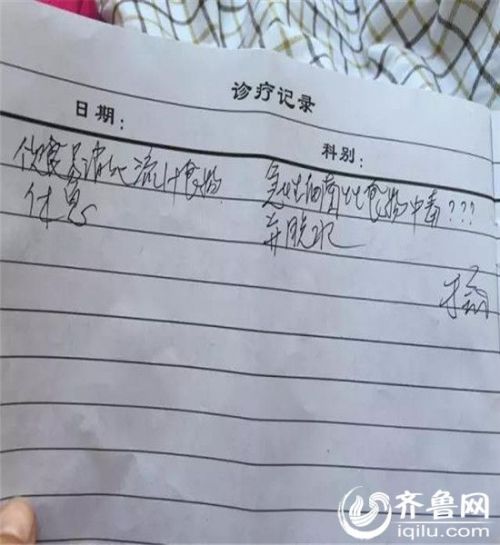 诊疗记录
日期：
科别：
饮食易消化流汁食物
休息
急性细菌性食物中毒???
并脱水
齐鲁网
iqilu.com